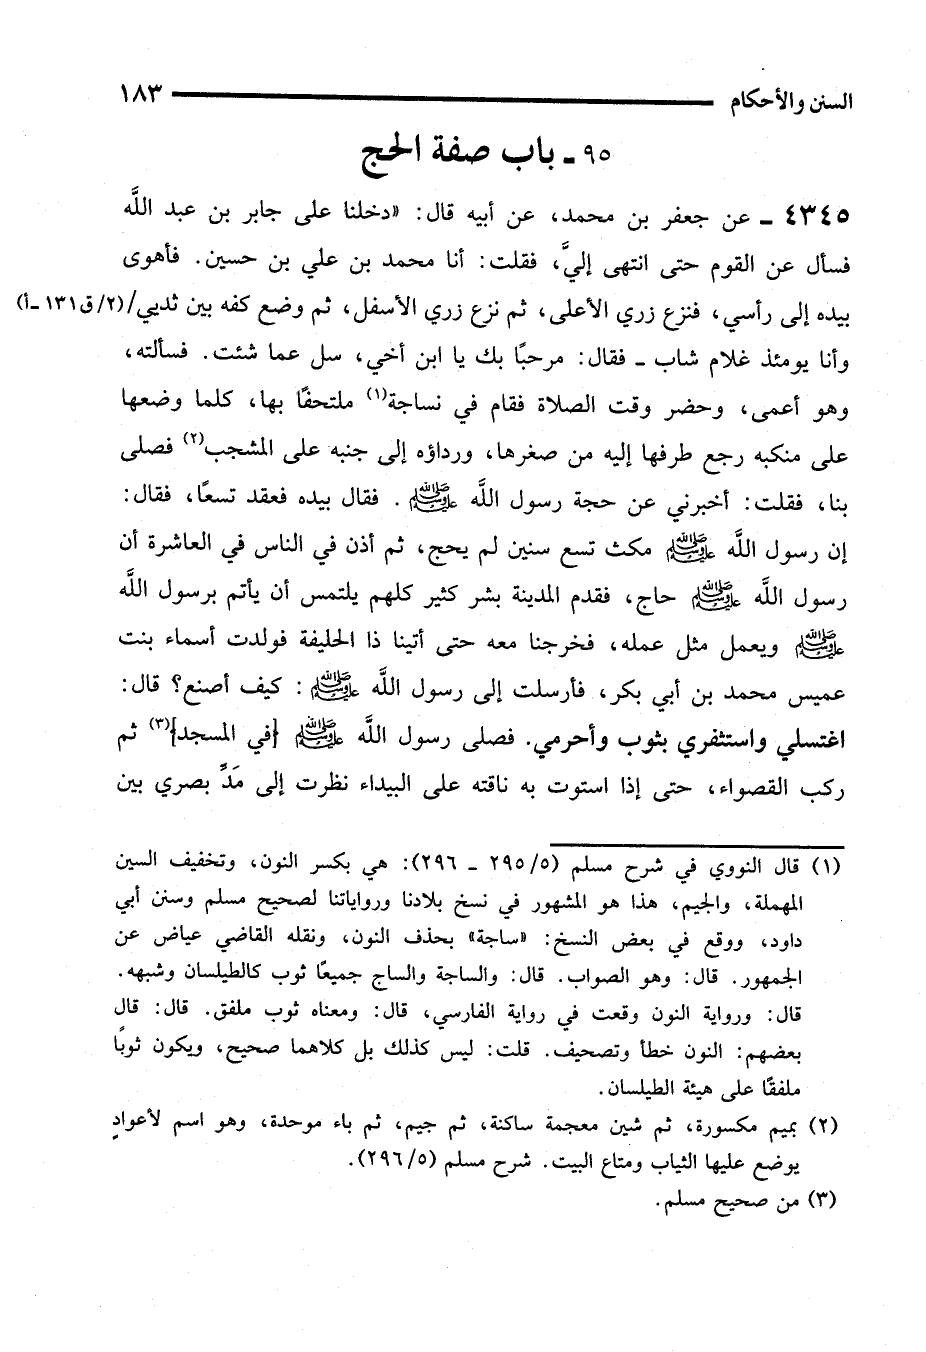 السنن والأحكام ١٨٣
٩٥ ـ باب صفة الحج
٤٣٤٥ ـ عن جعفر بن محمد، عن أبيه قال: «دخلنا على جابر بن عبد اللَّه
فسأل عن القوم حتى انتهى إليَّ، فقلت: أنا محمد بن علي بن حسين. فأهوى
بيده إلى رأسي، فنزع زري الأعلى، ثم نزع زري الأسفل، ثم وضع كفه بين ثديي/(٢/ق١٣١ـأ)
وأنا يومئذ غلام شاب ـ فقال: مرحبًا بك يا ابن أخي، سل عما شئت. فسألته،
وهو أعمى، وحضر وقت الصلاة فقام في نساجة(١) ملتحفًا بها، كلما وضعها
على منكبه رجع طرفها إليه من صغرها، ورداؤه إلى جنبه على المشجب(٢) فصلى
بنا، فقلت: أخبرني عن حجة رسول اللَّه ﷺ. فقال بيده فعقد تسعًا، فقال:
إن رسول اللَّه ﷺ مكث تسع سنين لم يحج، ثم أذن في الناس في العاشرة أن
رسول اللَّه ﷺ حاج، فقدم المدينة بشر كثير كلهم يلتمس أن يأتم برسول اللَّه
ﷺ ويعمل مثل عمله، فخرجنا معه حتى أتينا ذا الحليفة فولدت أسماء بنت
عميس محمد بن أبي بكر، فأرسلت إلى رسول اللَّه ﷺ: كيف أصنع؟ قال:
اغتسلي واستثفري بثوب وأحرمي. فصلى رسول اللَّه ﷺ {في المسجد}(٣) ثم
ركب القصواء، حتى إذا استوت به ناقته على البيداء نظرت إلى مَدِّ بصري بين
(١) قال النووي في شرح مسلم (٥/ ٢٩٥ ـ ٢٩٦): هي بكسر النون، وتخفيف السين
المهملة، والجيم، هذا هو المشهور في نسخ بلادنا ورواياتنا لصحيح مسلم وسنن أبي
داود، ووقع في بعض النسخ: «ساجة» بحذف النون، ونقله القاضي عياض عن
الجمهور. قال: وهو الصواب. قال: والساجة والساج جميعًا ثوب كالطيلسان وشبهه.
قال: ورواية النون وقعت في رواية الفارسي، قال: ومعناه ثوب ملفق. قال: قال
بعضهم: النون خطأ وتصحيف. قلت: ليس كذلك بل كلاهما صحيح، ويكون ثوبًا
ملفقًا على هيئة الطيلسان.
(٢) بميم مكسورة، ثم شين معجمة ساكنة، ثم جيم، ثم باء موحدة، وهو اسم لأعوادٍ
يوضع عليها الثياب ومتاع البيت. شرح مسلم (٥/ ٢٩٦).
(٣) من صحيح مسلم.